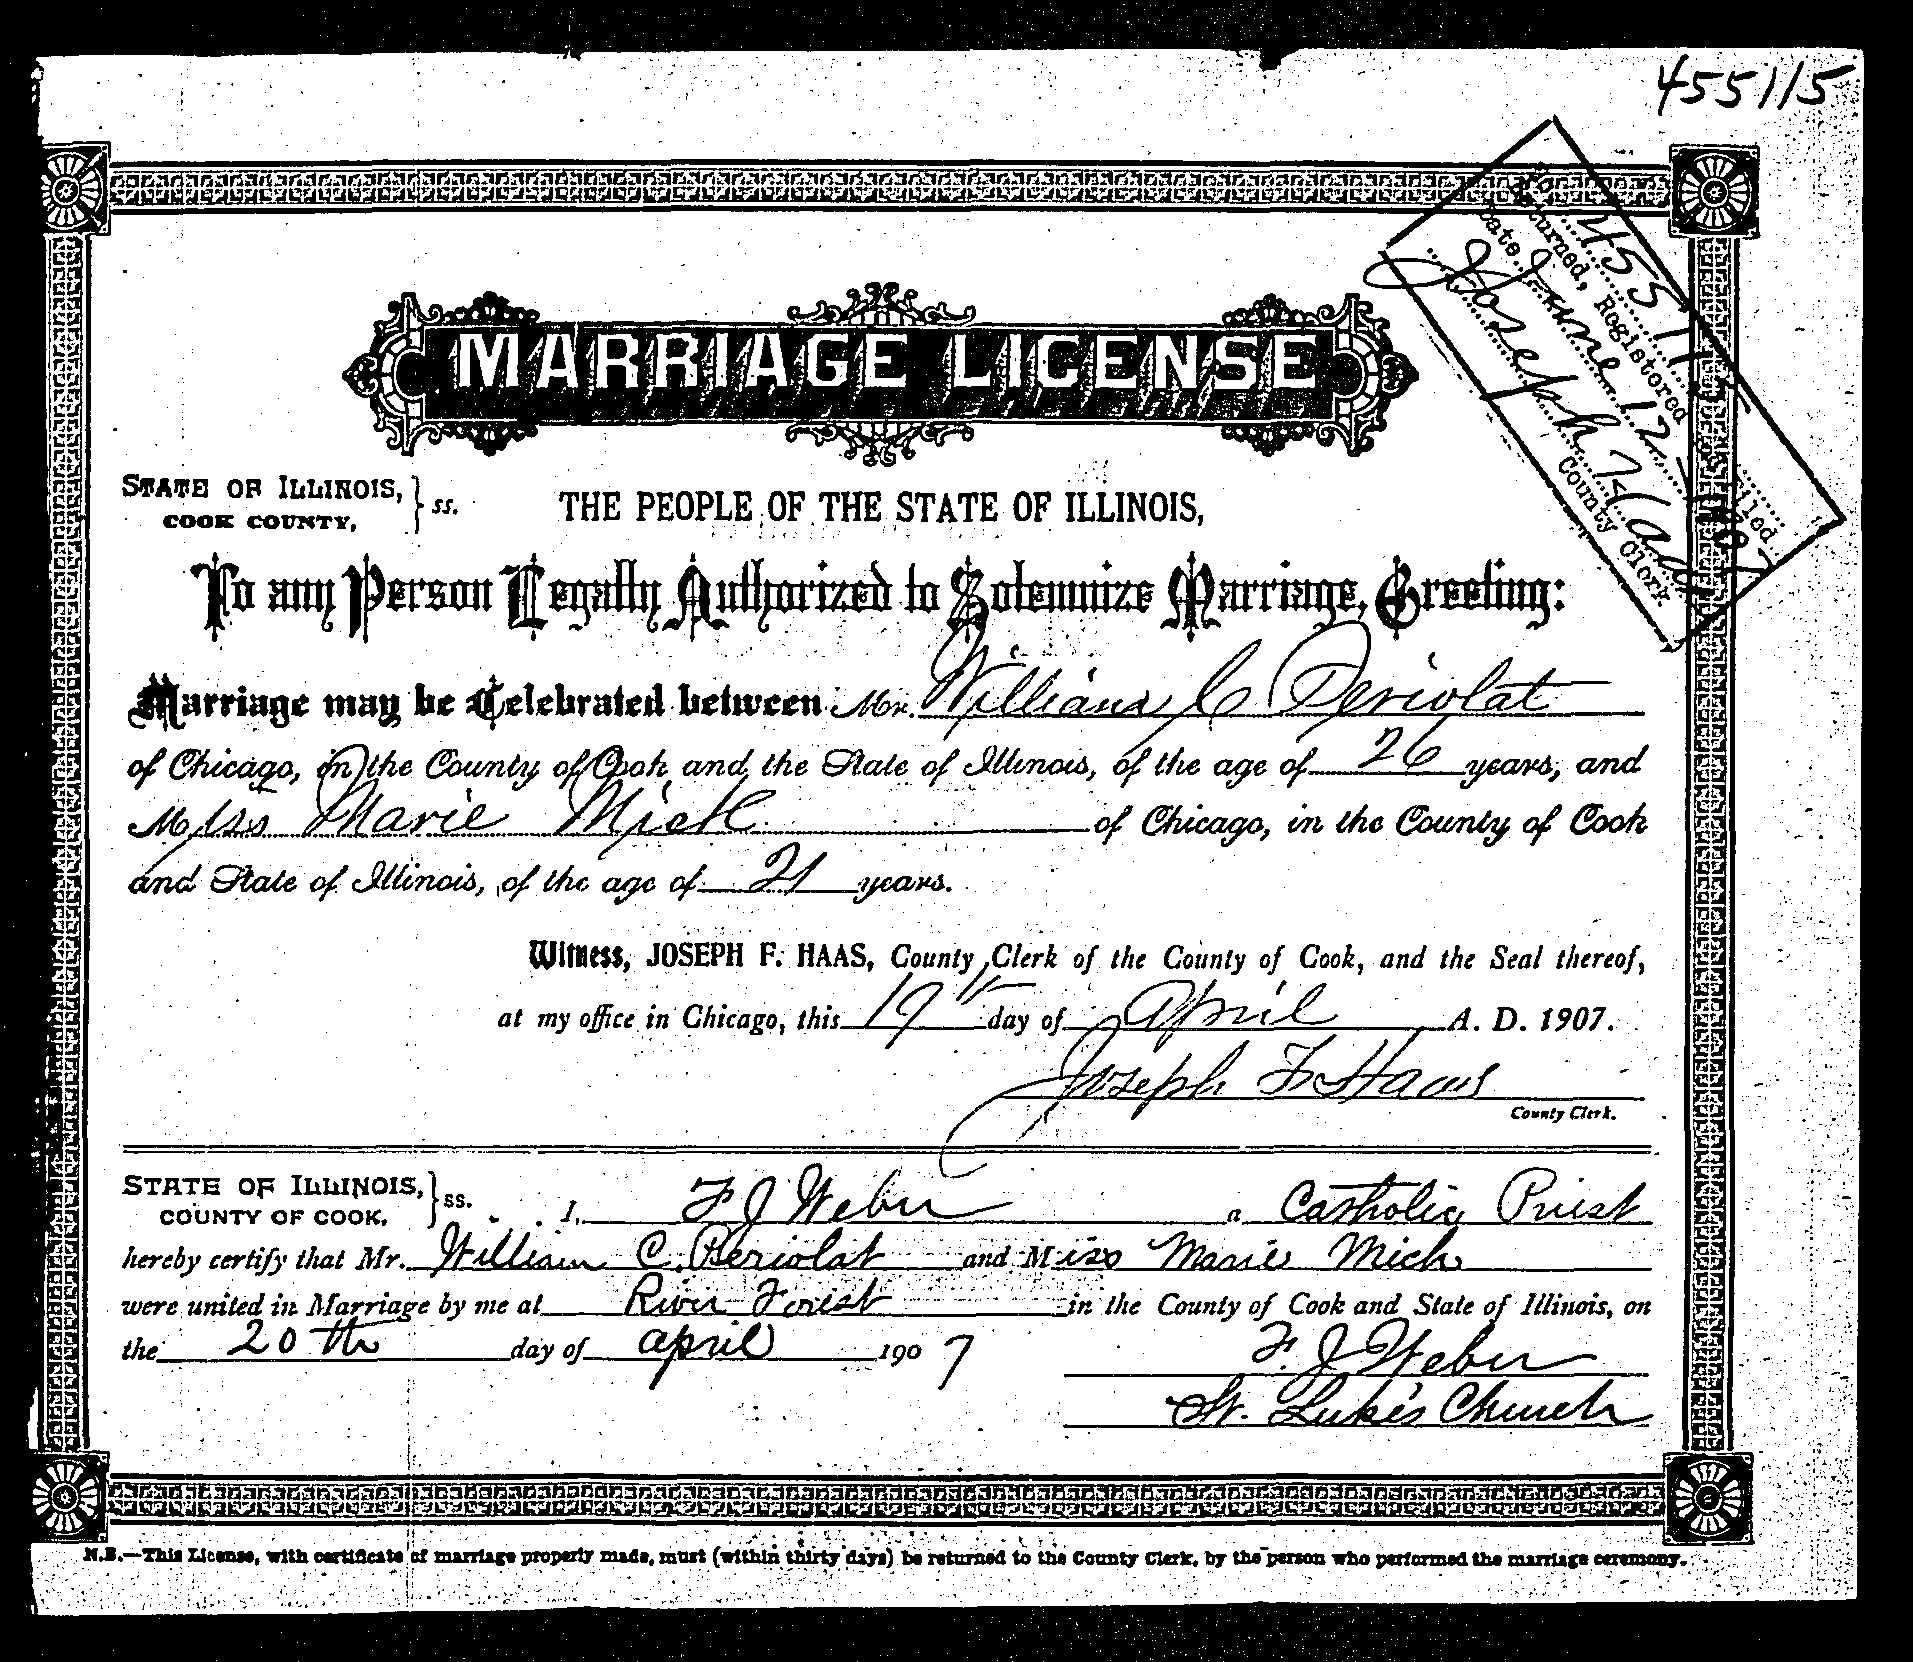 455115
No. 455115
Returned, Registered & Filed
Date June 12 1907
Joseph F Haas
County Clerk
MARRIAGE LICENSE
STATE OF ILLINOIS, } ss.
COOK COUNTY,
THE PEOPLE OF THE STATE OF ILLINOIS,
To any Person Legally Authorized to Solemnize Marriage, Greeting:
Marriage may be Celebrated between Mr. William C Periolat
of Chicago, in the County of Cook and the State of Illinois, of the age of 26 years, and
Miss Marie Mich of Chicago, in the County of Cook
and State of Illinois, of the age of 21 years.
Witness, JOSEPH F. HAAS, County Clerk of the County of Cook, and the Seal thereof,
at my office in Chicago, this 19th day of April A. D. 1907.
Joseph F Haas
County Clerk.
STATE OF ILLINOIS, } ss.
COUNTY OF COOK.
I, F J Weber a Catholic Priest
hereby certify that Mr. William C. Periolat and Miss Marie Mich
were united in Marriage by me at River Forest in the County of Cook and State of Illinois, on
the 20th day of april 1907
F. J Weber
St. Luke's Church
N.B.—This License, with certificate of marriage properly made, must (within thirty days) be returned to the County Clerk, by the person who performed the marriage ceremony.